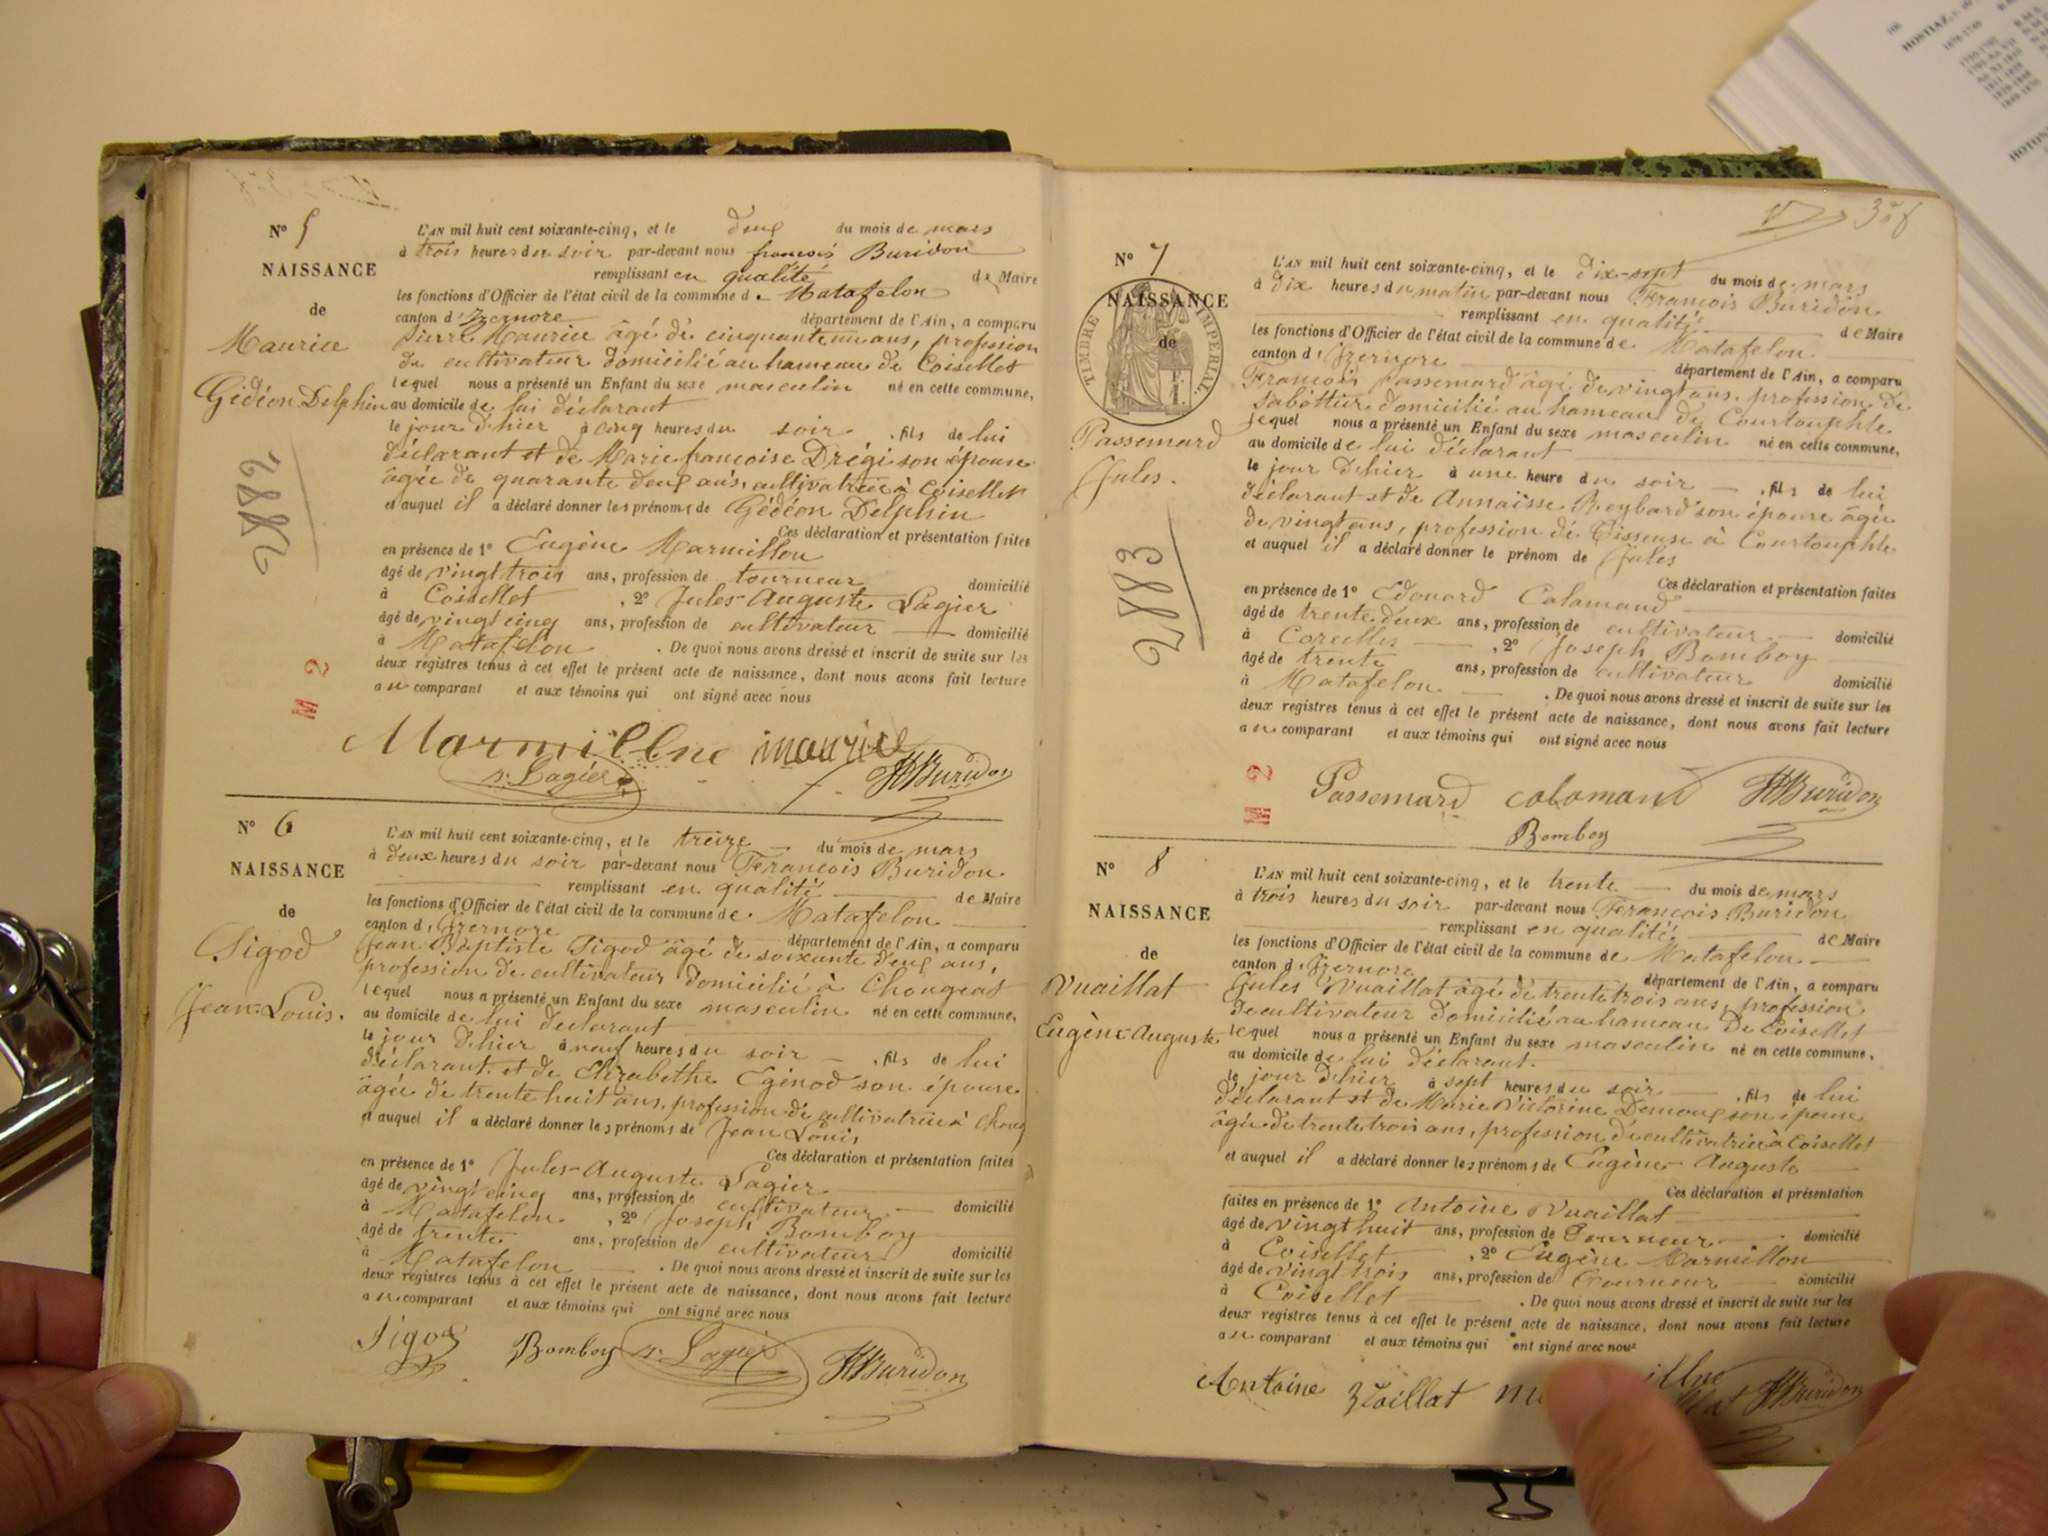 Nº 5
NAISSANCE
de
Maurice
Gédéon Delphin
2882
L'AN mil huit cent soixante-cinq, et le deux du mois de mars
à trois heures du soir par-devant nous françois Buridon
remplissant en qualité de Maire
les fonctions d'Officier de l'état civil de la commune de Matafelon
canton d'Izernore département de l'Ain, a comparu
Pierre Maurice âgé de cinquante un ans, profession
de cultivateur domicilié au hameau de Coisellet
lequel nous a présenté un Enfant du sexe masculin né en cette commune,
au domicile de lui déclarant
le jour d'hier à cinq heures du soir, fils de lui
déclarant et de Marie françoise Drégi son épouse
âgée de quarante deux ans, cultivatrice à Coisellet
et auquel il a déclaré donner les prénoms de Gédéon Delphin
Ces déclaration et présentation faites
en présence de 1º Eugène Marmillon
âgé de vingt trois ans, profession de tourneur domicilié
à Coisellet, 2º Jules-Auguste Lagier
âgé de vingt cinq ans, profession de cultivateur domicilié
à Matafelon. De quoi nous avons dressé et inscrit de suite sur les
deux registres tenus à cet effet le présent acte de naissance, dont nous avons fait lecture
au comparant et aux témoins qui ont signé avec nous
Marmillne maurice
Lagier Buridon
2 M
Nº 6
NAISSANCE
de
Sigod
Jean-Louis.
L'AN mil huit cent soixante-cinq, et le treize du mois de mars
à deux heures du soir par-devant nous François Buridon
remplissant en qualité de Maire
les fonctions d'Officier de l'état civil de la commune de Matafelon
canton d'Izernore département de l'Ain, a comparu
Jean Baptiste Sigod âgé de soixante deux ans,
profession de cultivateur domicilié à Chougeat
lequel nous a présenté un Enfant du sexe masculin né en cette commune,
au domicile de lui déclarant
le jour d'hier à neuf heures du soir, fils de lui
déclarant et de Elizabethe Eginod son épouse
âgée de trente huit ans, profession de cultivatrice à Choug
et auquel il a déclaré donner les prénoms de Jean Louis
Ces déclaration et présentation faites
en présence de 1º Jules-Auguste Lagier
âgé de vingt cinq ans, profession de cultivateur domicilié
à Matafelon, 2º Joseph Bomboy
âgé de trente ans, profession de cultivateur domicilié
à Matafelon. De quoi nous avons dressé et inscrit de suite sur les
deux registres tenus à cet effet le présent acte de naissance, dont nous avons fait lecture
au comparant et aux témoins qui ont signé avec nous
Sigod Bomboy Lagier Buridon
Nº 7
NAISSANCE
de
TIMBRE IMPERIAL
Passemard
Jules.
2883
L'AN mil huit cent soixante-cinq, et le dix-sept du mois de mars
à dix heures du matin par-devant nous François Buridon
remplissant en qualité de Maire
les fonctions d'Officier de l'état civil de la commune de Matafelon
canton d'Izernore département de l'Ain, a comparu
François Passemard âgé de vingt ans profession de
Sabottier domicilié au hameau de Courtouphle
lequel nous a présenté un Enfant du sexe masculin né en cette commune,
au domicile de lui déclarant
le jour d'hier à une heure du soir, fils de lui
déclarant et de Annaïsse Reybard son épouse âgée
de vingt ans, profession de Tisseuse à Courtouphle
et auquel il a déclaré donner le prénom de Jules
Ces déclaration et présentation faites
en présence de 1º Edouard Calamand
âgé de trente deux ans, profession de cultivateur domicilié
à Corcelles, 2º Joseph Bomboy
âgé de trente ans, profession de cultivateur domicilié
à Matafelon. De quoi nous avons dressé et inscrit de suite sur les
deux registres tenus à cet effet le présent acte de naissance, dont nous avons fait lecture
au comparant et aux témoins qui ont signé avec nous
Passemard colomand Buridon
Bomboy
2
Nº 8
NAISSANCE
de
Vuaillat
Eugène-Auguste
L'AN mil huit cent soixante-cinq, et le trente du mois de mars
à trois heures du soir par-devant nous François Buridon
remplissant en qualité de Maire
les fonctions d'Officier de l'état civil de la commune de Matafelon
canton d'Izernore département de l'Ain, a comparu
Jules Vuaillat âgé de trente trois ans, profession
de cultivateur domicilié au hameau de Coisellet
lequel nous a présenté un Enfant du sexe masculin né en cette commune,
au domicile de lui déclarant
le jour d'hier à sept heures du soir, fils de lui
déclarant et de Marie Victorine Demoux son épouse
âgée de trente trois ans, profession de cultivatrice à Coisellet
et auquel il a déclaré donner les prénoms de Eugène-Auguste
Ces déclaration et présentation
faites en présence de 1º Antoine Vuaillat
âgé de vingt huit ans, profession de Tourneur domicilié
à Coisellet, 2º Eugène Marmillon
âgé de vingt trois ans, profession de Tourneur domicilié
à Coisellet. De quoi nous avons dressé et inscrit de suite sur les
deux registres tenus à cet effet le présent acte de naissance, dont nous avons fait lecture
au comparant et aux témoins qui ont signé avec nous
Antoine Buridon
HOSTIAZ